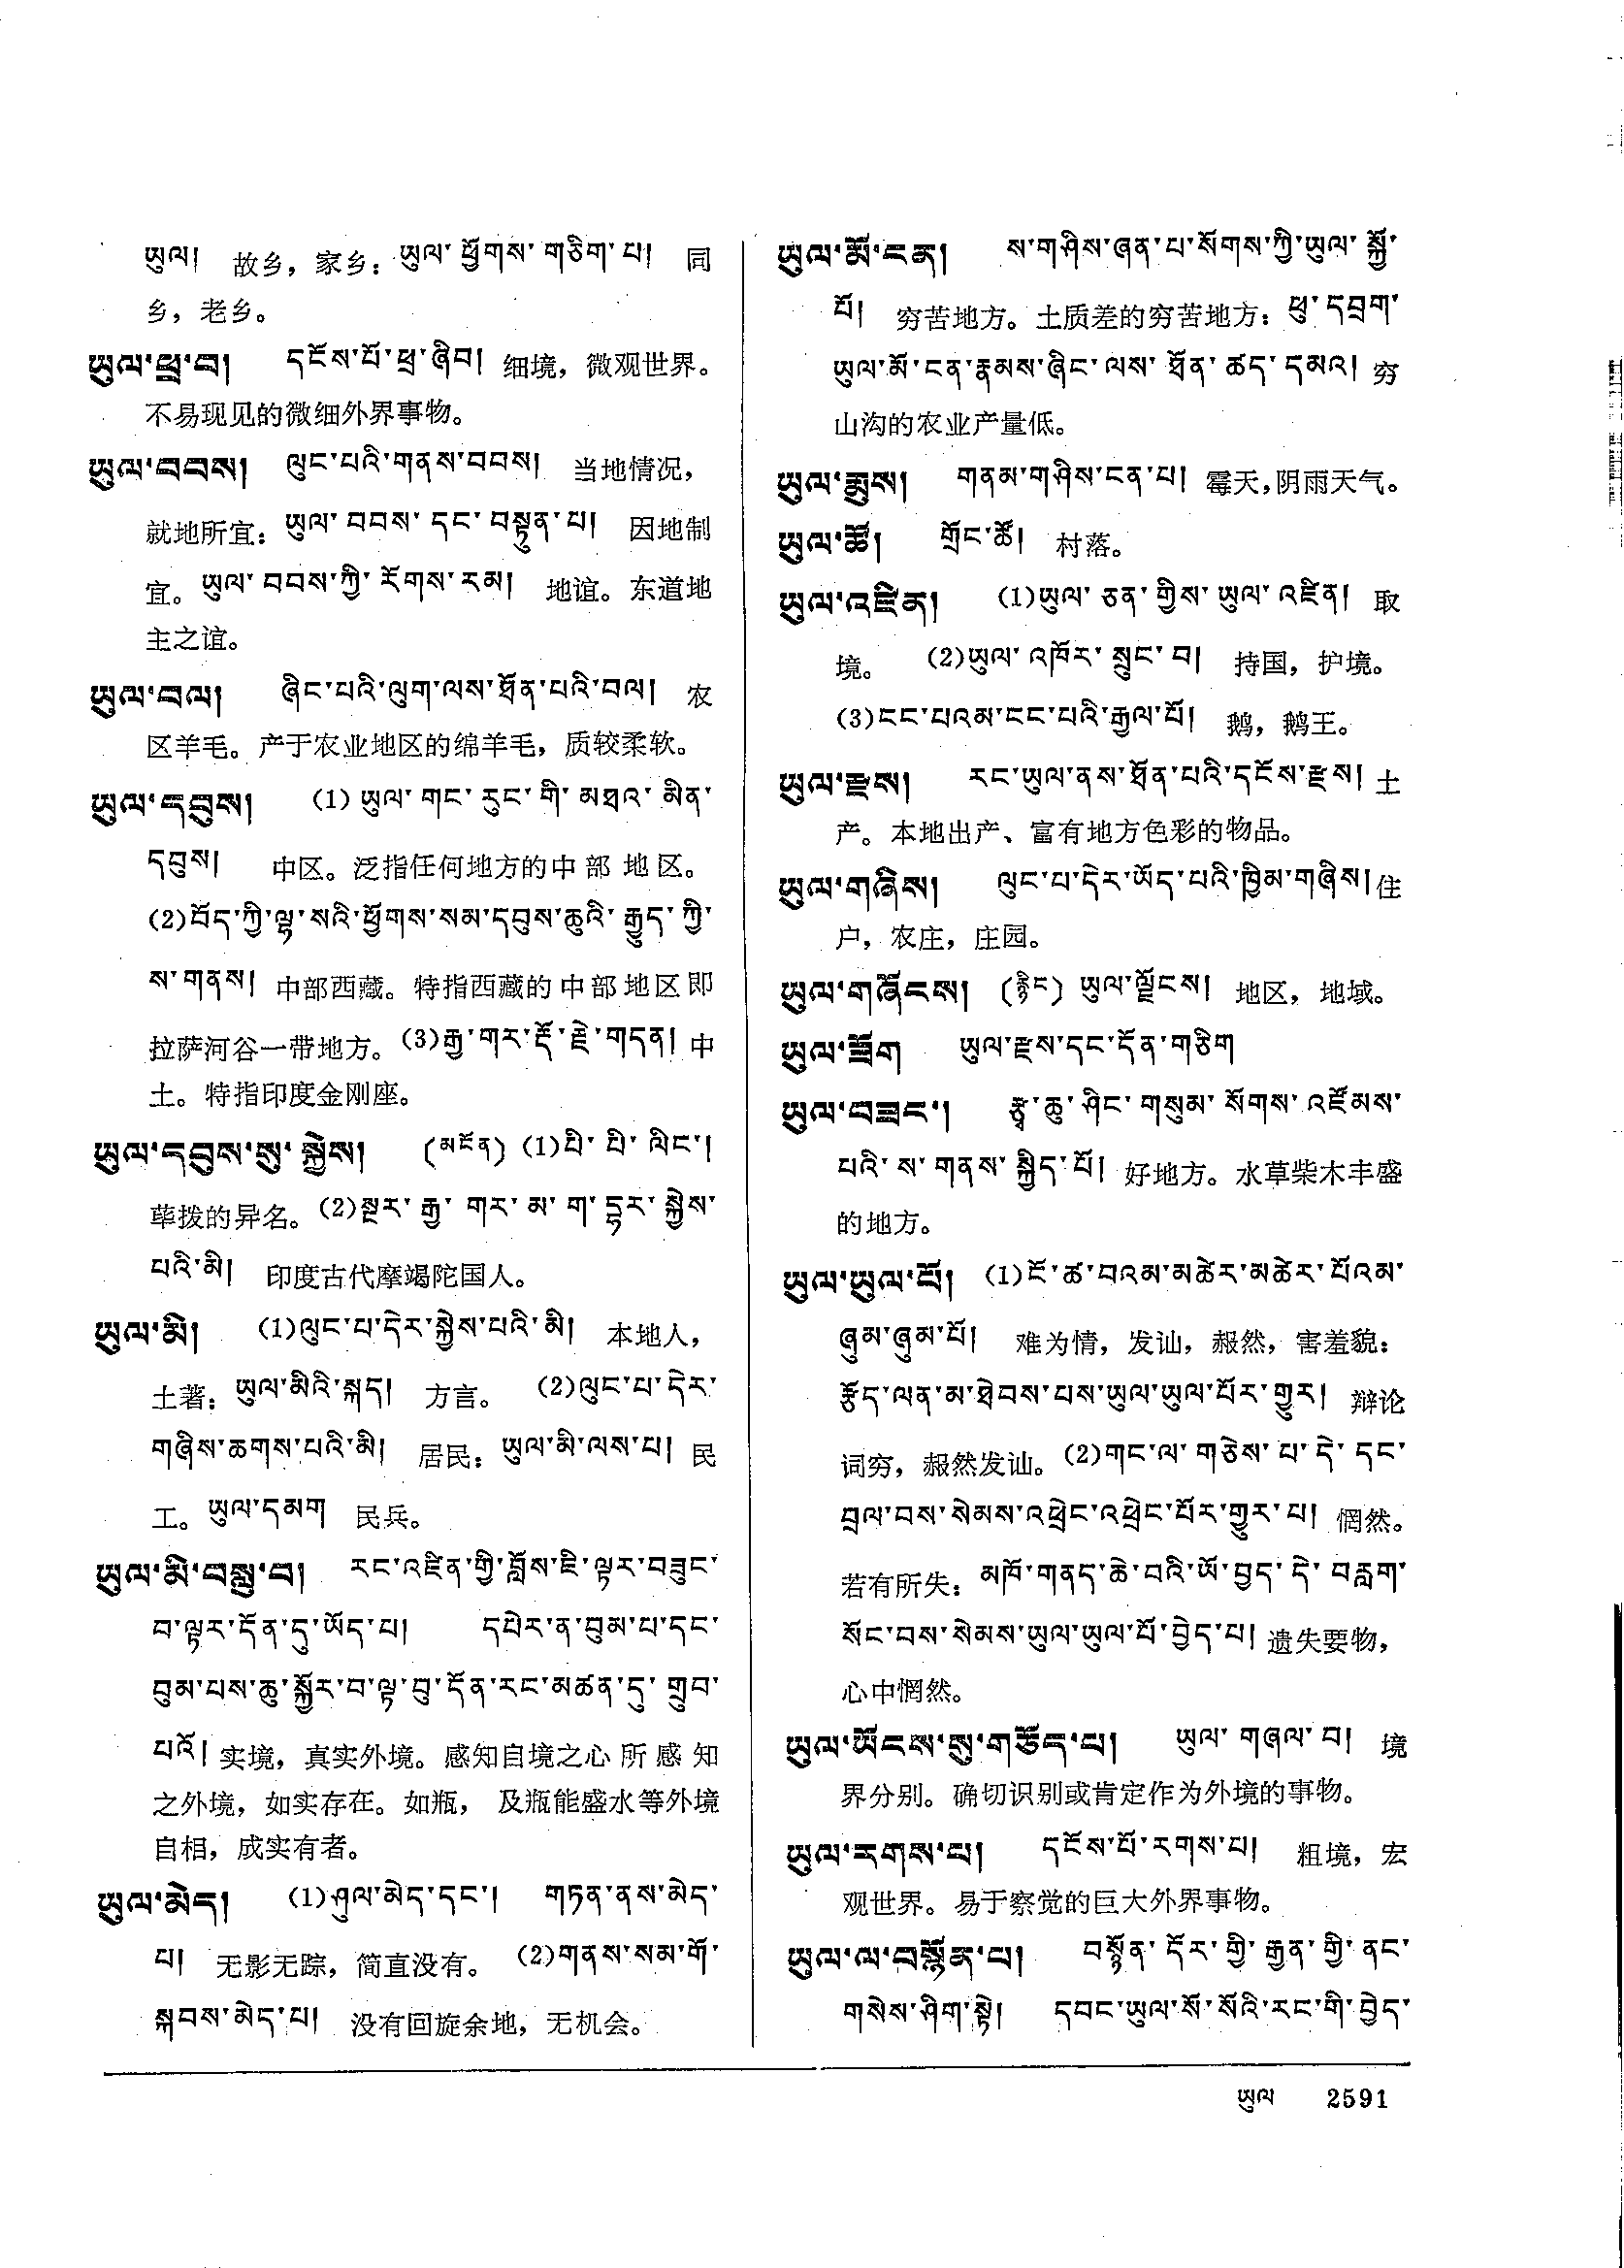 ཡུལ། 故乡，家乡：ཡུལ་ཕྱོགས་གཅིག་པ། 同
乡，老乡。
ཡུལ་ཕྲ་བ། དངོས་པོ་ཕྲ་ཞིབ། 细境，微观世界。
不易现见的微细外界事物。
ཡུལ་བབས། ལུང་པའི་གནས་བབས། 当地情况，
就地所宜：ཡུལ་བབས་དང་བསྟུན་པ། 因地制
宜。ཡུལ་བབས་ཀྱི་རོགས་རམ། 地谊。东道地
主之谊。
ཡུལ་བལ། ཞིང་པའི་ལུག་ལས་ཐོན་པའི་བལ། 农
区羊毛。产于农业地区的绵羊毛，质较柔软。
ཡུལ་དབུས། (1) ཡུལ་གང་རུང་གི་མཐའ་མིན་
དབུས། 中区。泛指任何地方的中部地区。
(2)བོད་ཀྱི་ལྷ་སའི་ཕྱོགས་སམ་དབུས་ཆུའི་རྒྱུད་ཀྱི་
ས་གནས། 中部西藏。特指西藏的中部地区即
拉萨河谷一带地方。(3)རྒྱ་གར་རྡོ་རྗེ་གདན། 中
土。特指印度金刚座。
ཡུལ་དབུས་སུ་སྐྱེས། (མངོན) (1)པི་པི་ལིང་།
荜拨的异名。(2)སྔར་རྒྱ་གར་མ་ག་དྷར་སྐྱེས་
པའི་མི། 印度古代摩竭陀国人。
ཡུལ་མི། (1)ལུང་པ་དེར་སྐྱེས་པའི་མི། 本地人，
土著：ཡུལ་མིའི་སྐད། 方言。 (2)ལུང་པ་དེར་
གཞིས་ཆགས་པའི་མི། 居民：ཡུལ་མི་ལས་པ། 民
工。ཡུལ་དམག 民兵。
ཡུལ་མི་བསླུ་བ། རང་འཛིན་གྱི་བློས་ཇི་ལྟར་བཟུང་
བ་ལྟར་དོན་དུ་ཡོད་པ། དཔེར་ན་བུམ་པ་དང་
བུམ་པས་ཆུ་སྐྱོར་བ་ལྟ་བུ་དོན་རང་མཚན་དུ་གྲུབ་
པའོ། 实境，真实外境。感知自境之心所感知
之外境，如实存在。如瓶，及瓶能盛水等外境
自相，成实有者。
ཡུལ་མེད། (1)ཤུལ་མེད་དང་། གཏན་ནས་མེད་
པ། 无影无踪，简直没有。 (2)གནས་སམ་གོ་
སྐབས་མེད་པ། 没有回旋余地，无机会。
ཡུལ་མོ་ངན། ས་གཤིས་ཞན་པ་སོགས་ཀྱི་ཡུལ་སྐྱོ་
པོ། 穷苦地方。土质差的穷苦地方：ཕུ་དབྲག་
ཡུལ་མོ་ངན་རྣམས་ཞིང་ལས་ཐོན་ཚད་དམའ། 穷
山沟的农业产量低。
ཡུལ་རྨུས། གནམ་གཤིས་ངན་པ། 霉天，阴雨天气。
ཡུལ་ཚོ། གྲོང་ཚོ། 村落。
ཡུལ་འཛིན། (1)ཡུལ་ཅན་གྱིས་ཡུལ་འཛིན། 取
境。 (2)ཡུལ་འཁོར་སྲུང་བ། 持国，护境。
(3)ངང་པའམ་ངང་པའི་རྒྱལ་པོ། 鹅，鹅王。
ཡུལ་རྫས། རང་ཡུལ་ནས་ཐོན་པའི་དངོས་རྫས། 土
产。本地出产、富有地方色彩的物品。
ཡུལ་གཞིས། ལུང་པ་དེར་ཡོད་པའི་ཁྱིམ་གཞིས། 住
户，农庄，庄园。
ཡུལ་གཞོངས། (རྙིང) ཡུལ་ལྗོངས། 地区，地域。
ཡུལ་ཟོག ཡུལ་རྫས་དང་དོན་གཅིག
ཡུལ་བཟང་། རྩྭ་ཆུ་ཤིང་གསུམ་སོགས་འཛོམས་
པའི་ས་གནས་སྐྱིད་པོ། 好地方。水草柴木丰盛
的地方。
ཡུལ་ཡུལ་པོ། (1)ངོ་ཚ་བའམ་མཚེར་མཚེར་པོའམ་
ཞུམ་ཞུམ་པོ། 难为情，发讪，赧然，害羞貌：
རྩོད་ལན་མ་ཐེབས་པས་ཡུལ་ཡུལ་པོར་གྱུར། 辩论
词穷，赧然发讪。(2)གང་ལ་གཅེས་པ་དེ་དང་
བྲལ་བས་སེམས་འཕྲེང་འཕྲེང་པོར་གྱུར་པ། 惘然。
若有所失：མཁོ་གནད་ཆེ་བའི་ཡོ་བྱད་དེ་བརླག་
སོང་བས་སེམས་ཡུལ་ཡུལ་པོ་བྱེད་པ། 遗失要物，
心中惘然。
ཡུལ་ཡོངས་སུ་གཅོད་པ། ཡུལ་གཞལ་བ། 境
界分别。确切识别或肯定作为外境的事物。
ཡུལ་རགས་པ། དངོས་པོ་རགས་པ། 粗境，宏
观世界。易于察觉的巨大外界事物。
ཡུལ་ལ་བསྙོན་པ། བསྙོན་དོར་གྱི་རྒྱན་གྱི་ནང་
གསེས་ཤིག་སྟེ། དབང་ཡུལ་སོ་སོའི་རང་གི་བྱེད་
ཡུལ 2591